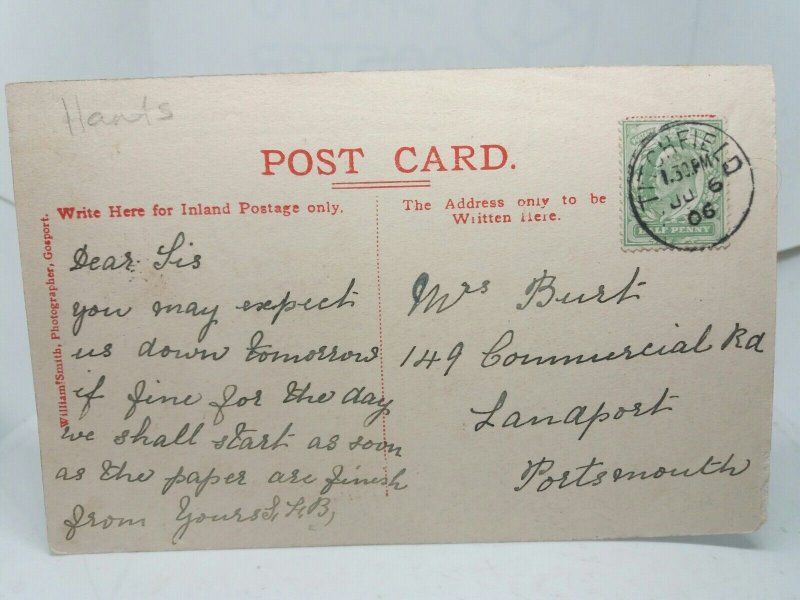 Hants
POST CARD.
Write Here for Inland Postage only.
The Address only to be
Written Here.
TITCHFIELD
1.30 PM
JU 6
06
HALF PENNY
William Smith, Photographer, Gosport.
Dear Sis
you may expect
us down tomorrow
if fine for the day
we shall start as soon
as the paper are finish
from Yours
Mrs Burt
149 Commercial Rd
Landport
Portsmouth